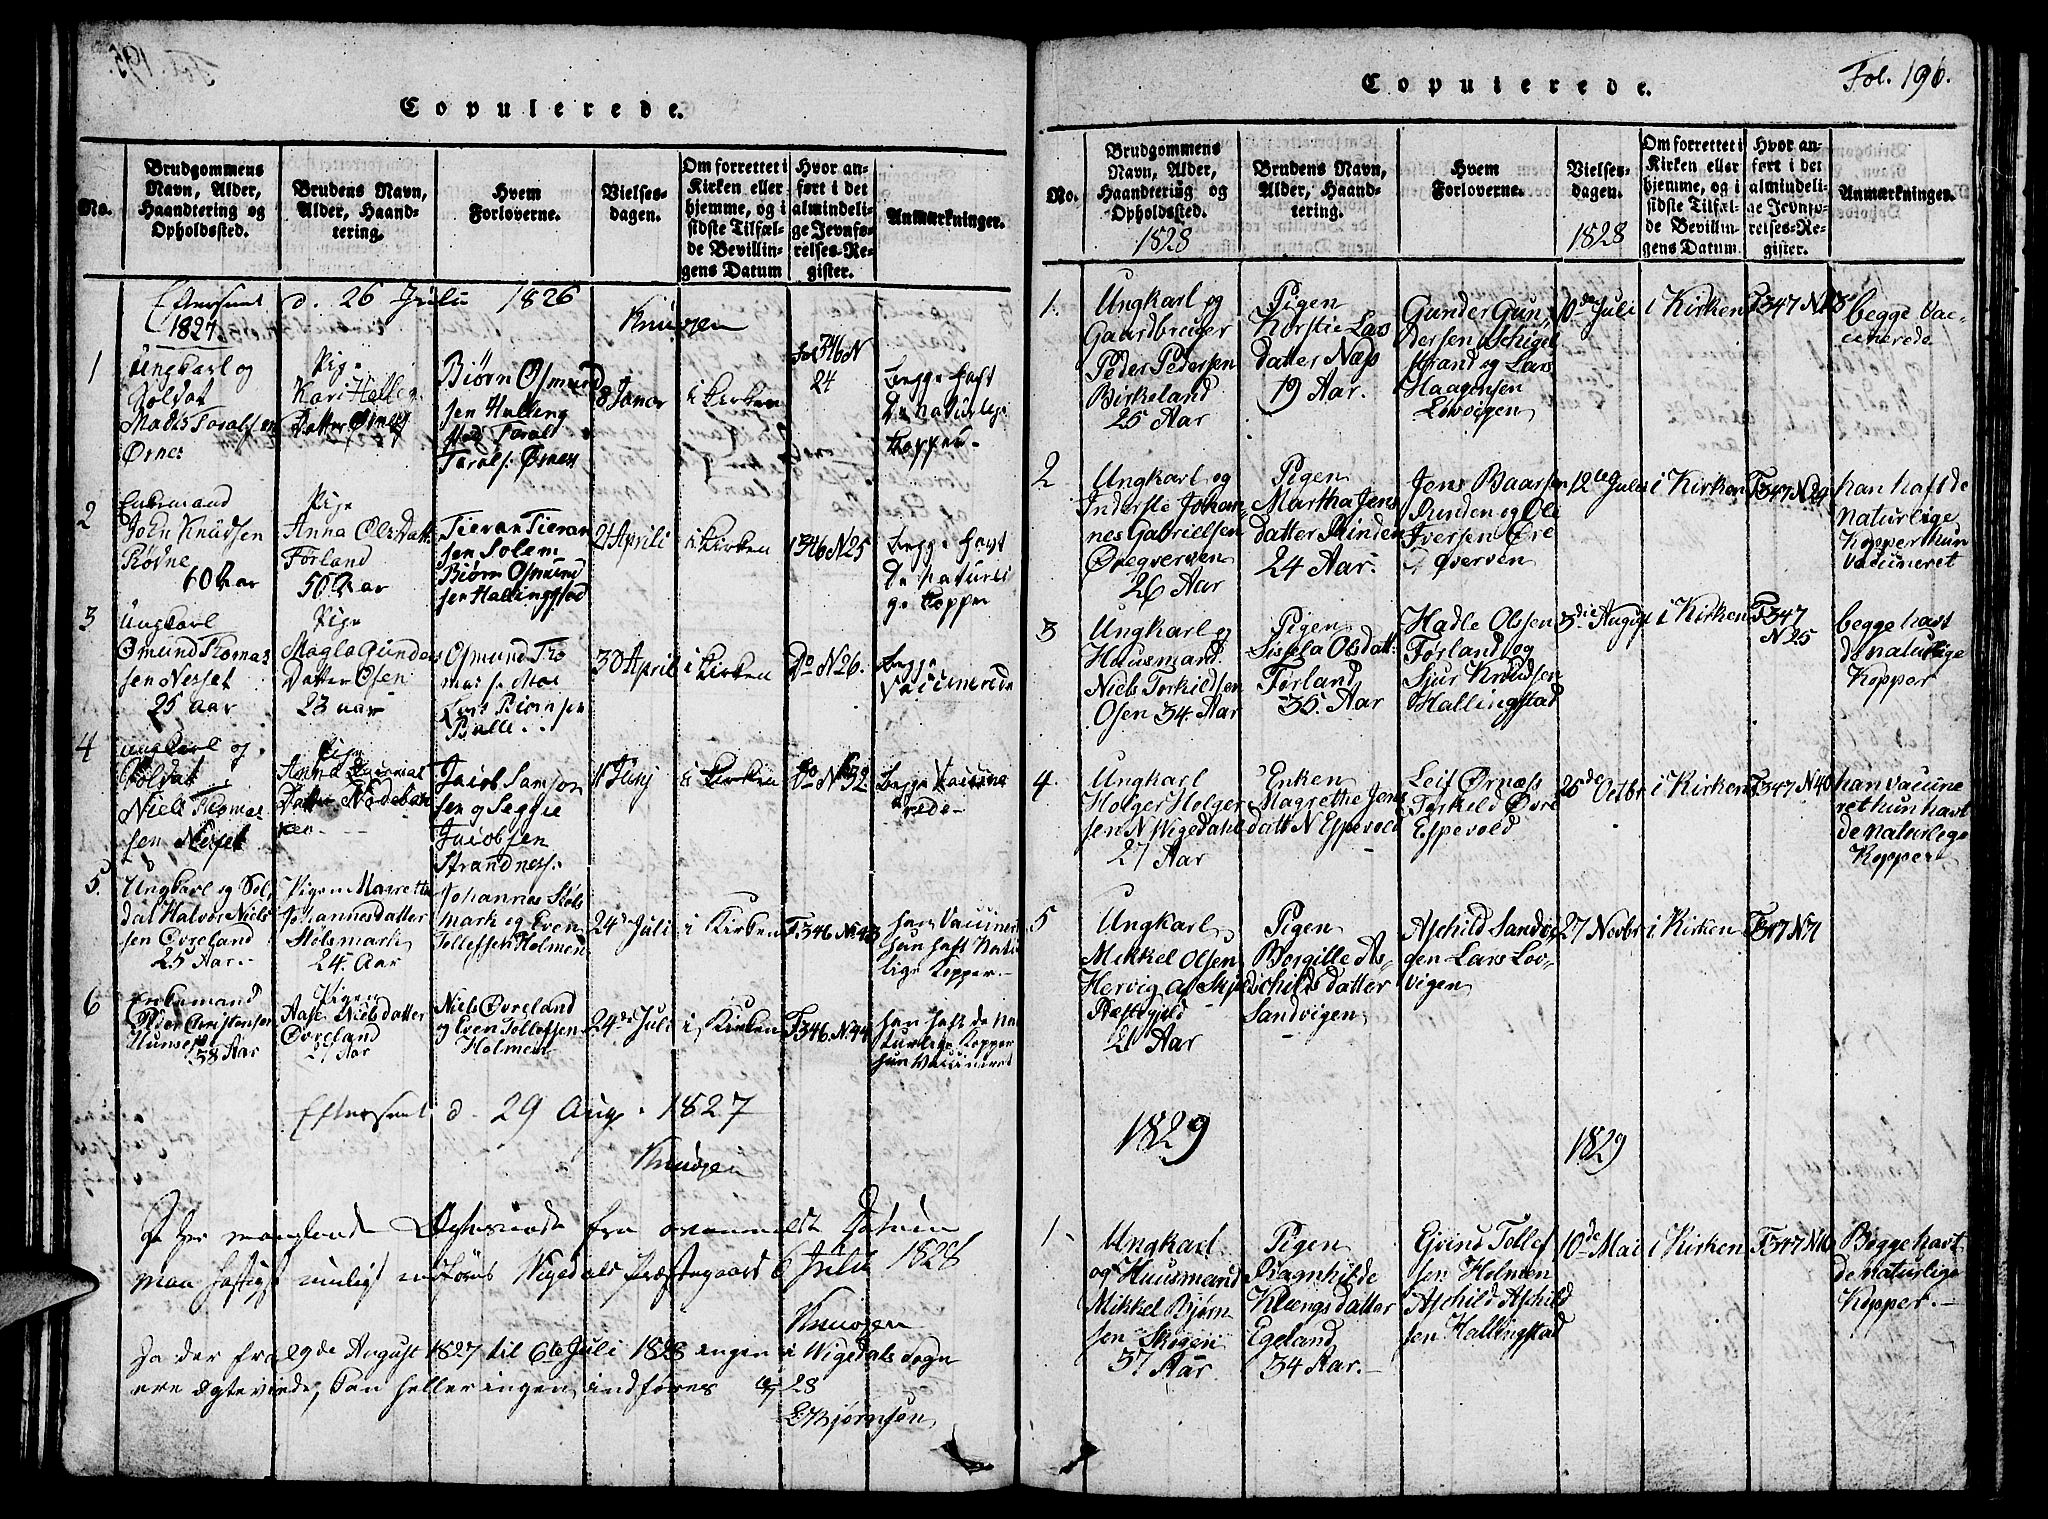 Copulerede.
No.
Brudgommens
Navn, Alder,
Haandtering og
Opholdssted.
Brudens Navn,
Alder, Haand-
tering.
Hvem
Forloverne.
Vielses-
dagen.
Om forrettet i
Kirken eller
hjemme, og i
sidste Tilfæl-
de Bevillin-
gens Datum
Hvor an-
ført i det
almindeli-
ge Jevnfø-
relses-Re-
gister.
Anmærkninger.
Efterseet d. 26 Julii 1826
Knudzen
1827
1
Ungkarl og
Soldat
Mads Taralsen
Ørnes
Pige
Kari Helleg
Datter
Biørn Osmund
sen Halling
stad Taral
Tarals: Ørness
8 Januar
i Kirken
fol 346 N
24
Begge haft
De naturlige
Kopper.
2
Enkemand
John Knudsen
Rødne
60 Aar
Pige
Anna Olsdatt
Førland
50 Aar
Tieran Tieran
sen Solem
Biørn Osmund
sen Hallingstad
21 Aprili
i Kirken
1346 N25
Begge havt
De Naturli
ge Kopper
3
Ungkarl
Osmund Thomas
sen Nesset
25 aar
Pige
Magla Gunders
Datter Osen
23 aar
Osmund Tho
mas
Lars Biørnsen
30 April
i Kirken
Do N 26.
Begge
Vaccinerede
4
Ungkarl og
Soldat
Niels Thomas
sen Nesset
Pige
Anna
Datter
Jacob Samson
sen og Seggie
Jacobsen
Strandness.
11 Junj
i Kirken
Do N 32.
Begge Vaccine
rede
5.
Ungkarl og Sol
dat Halvor Niels
sen Øvreland
25 Aar.
Pigen Marretta
Johannesdatter
Stølsmark
24. Aar
Johannes Støls
mark og Even
Tollefsen Holmen
24de Juli
i Kirken
F. 346 No 43
han Vaccineret
hun haft Natur
lige Kopper.
6
Enkemand
Peder Christensen
38 Aar
Pigen
Aase Nielsdatter
Øvreland
Niels Øvreland
og Even Tollefsen
Holmen
24de Juli
i Kirken
F. 346. N. 44
han haft de Na
turlige Kopper
hun Vaccineret
Efterseet d. 29 Aug. 1827
Knudzen
De her manglende fra ovenmeldt Datum
maa hastigst muligt indføres Vigedals Præstegaard 6 Julii 1828
Knudzen
Da der fra 29de August 1827 til 6te Juli 1828 ingen i Vigedals Sogn
ere ægteviede, kan heller ingen indføres 28
E: Bjørnsen
Copulerede.
Fol. 196.
No.
Brudgommens
Navn, Alder,
Haandtering og
Opholdssted.
1828
Brudens Navn,
Alder, Haand-
tering.
Hvem
Forloverne.
Vielses-
dagen.
1828
Om forrettet i
Kirken eller
hjemme, og i
sidste Tilfæl-
de Bevillin-
gens Datum.
Hvor an-
ført i det
almindeli-
ge Jevnfø-
relses-Re-
gister.
Anmærkninger.
1.
Ungkarl og
Gaardbruger
Peder Pedersen
Birkeland
25 Aar
Pigen
Korstie Lars
datter Næs
19 Aar.
Gunder Gun,
dersen
strand og Lars
Haagensen
Løvvigen
10de Juli
i Kirken
F347 N18
begge Vac-
cinerede
2
Ungkarl og
Inderste Johan
nes Gabrielsen
Øvregverven
26 Aar
Pigen
Martha Jens
datter Rinden
24 Aar.
Jens Baarsen
Rinden og Ole
Iversen Øre
qverven
12te Juli
i Kirken
F347 N29
han haft de
naturlige
Kopper hun
vaccineret
3
Ungkarl og
Huusmand
Niels Torkildsen
Osen 34. Aar
Pigen
Sisela Olsdatt:
Førland
35. Aar
Hadle Olssen
Førland og
Sjur Knudsen
Hallingstad
3die August
i Kirken
F347
N25
begge havt
de naturlige
Kopper
4.
Ungkarl
Holger Holger
sen N Vigedahl
27 Aar
Enken
Magrethe Jens
datt N Espevold
Leif Ørnæss
Torkild Øvre
Espevold
25de Octbr
i Kirken
F347 N40
han vaccine
ret hun havt
de naturlige
Kopper
5
Ungkarl
Mikkel Olsen
Hervig af Skjold
Præstegjeld
21 Aar
Pigen
Borgille As-
childsdatter
Sandvigen
Aschild Sandvi
gen Lars Løv-
vigen
27 Novbr
i Kirken
F347 N71
1829
1829
1.
Ungkarl
og Huusmand
Mikkel Bjørn
sen Skogen
37 Aar
Pigen
Ragnhilde
Klængsdatter
Egeland
34 Aar.
Ejvind Tollef
sen Holmen
Aschild Aschild
sen Hallingstad
10de Mai
i Kirken
F347 N16
Begge havt
de naturlige
Kopper.